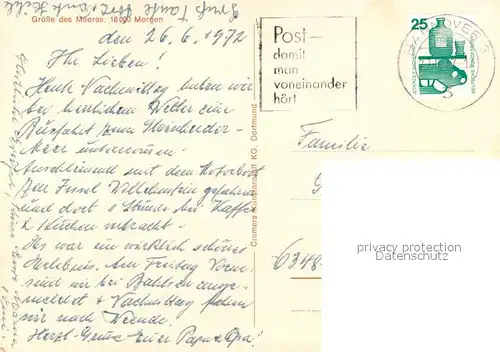 Größe des Meeres: 18000 Morgen
den 26. 6. 1972
Ihr Lieben!
Heute Nachmittag haben wir
bei herrlichem Wetter eine
Busfahrt zum Steinhuder-
Meer unternommen.
Anschliessend mit dem Motorboot
zur Insel Wilhelmstein gefahren
und dort 1 Stunde bei Kaffee
& Kuchen verbracht.
Es war ein wirklich schönes
Erlebnis. Am Freitag Vorm.
sind wir bei Bahlsen ange-
meldet & Nachmittag fahren
wir nach Weende.
Herzl. Grüsse Euer Papa & Opa!
Cramers Kunstanstalt KG, Dortmund
Post–
damit
man
voneinander
hört
25
HANNOVER
3
Familie
6348
privacy protection
www.oldthing.de